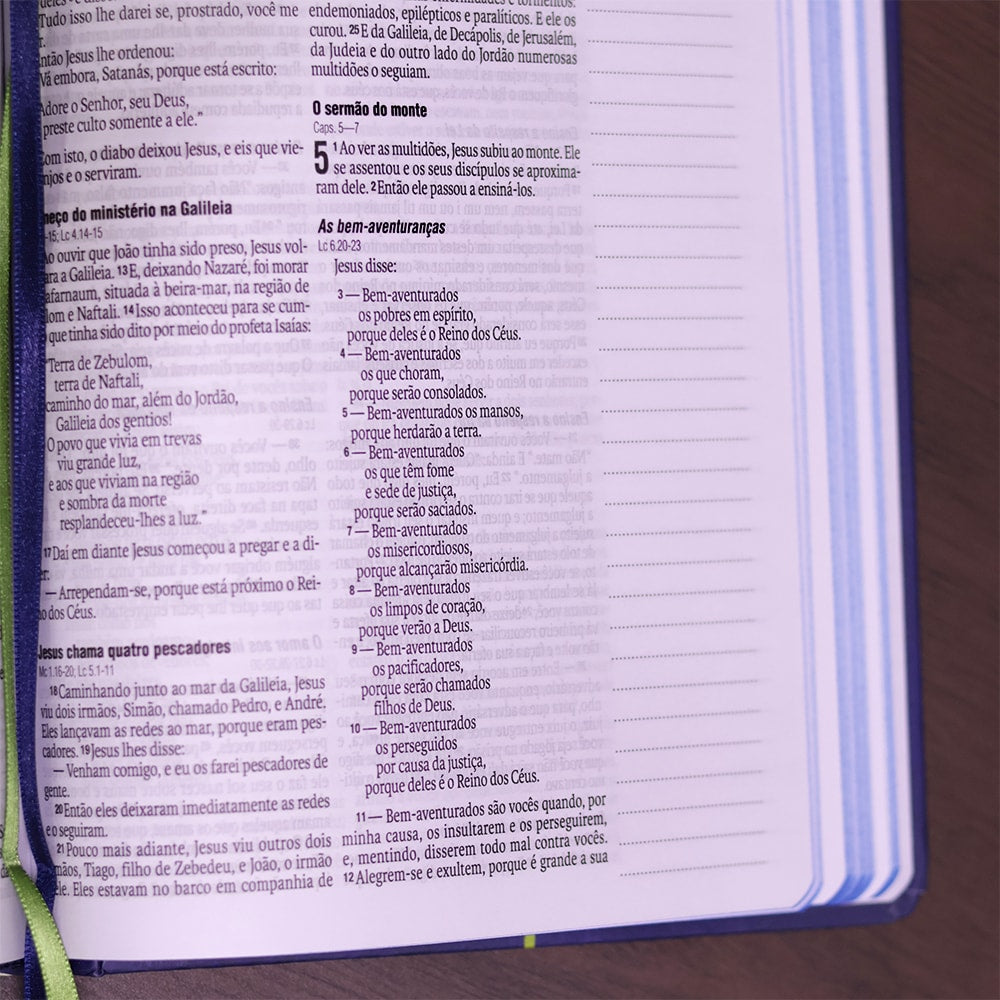 Tudo isso lhe darei se, prostrado, você me
r.
ntão Jesus lhe ordenou:
Vá embora, Satanás, porque está escrito:
Adore o Senhor, seu Deus,
preste culto somente a ele."
Com isto, o diabo deixou Jesus, e eis que vie-
njos e o serviram.
meço do ministério na Galileia
-15; Lc 4.14-15
Ao ouvir que João tinha sido preso, Jesus vol-
ara a Galileia. 13E, deixando Nazaré, foi morar
afarnaum, situada à beira-mar, na região de
lom e Naftali. 14Isso aconteceu para se cum-
que tinha sido dito por meio do profeta Isaías:
"Terra de Zebulom,
terra de Naftali,
caminho do mar, além do Jordão,
Galileia dos gentios!
O povo que vivia em trevas
viu grande luz,
e aos que viviam na região
e sombra da morte
resplandeceu-lhes a luz."
17Daí em diante Jesus começou a pregar e a di-
r:
— Arrependam-se, porque está próximo o Rei-
no dos Céus.
Jesus chama quatro pescadores
Mc 1.16-20; Lc 5.1-11
18Caminhando junto ao mar da Galileia, Jesus
viu dois irmãos, Simão, chamado Pedro, e André.
Eles lançavam as redes ao mar, porque eram pes-
cadores. 19Jesus lhes disse:
— Venham comigo, e eu os farei pescadores de
gente.
20Então eles deixaram imediatamente as redes
e o seguiram.
21Pouco mais adiante, Jesus viu outros dois
mãos, Tiago, filho de Zebedeu, e João, o irmão
ele. Eles estavam no barco em companhia de
endemoniados, epilépticos e paralíticos. E ele os
curou. 25E da Galileia, de Decápolis, de Jerusalém,
da Judeia e do outro lado do Jordão numerosas
multidões o seguiam.
O sermão do monte
Caps. 5—7
5 1Ao ver as multidões, Jesus subiu ao monte. Ele
se assentou e os seus discípulos se aproxima-
ram dele. 2Então ele passou a ensiná-los.
As bem-aventuranças
Lc 6.20-23
Jesus disse:
3 — Bem-aventurados
os pobres em espírito,
porque deles é o Reino dos Céus.
4 — Bem-aventurados
os que choram,
porque serão consolados.
5 — Bem-aventurados os mansos,
porque herdarão a terra.
6 — Bem-aventurados
os que têm fome
e sede de justiça,
porque serão saciados.
7 — Bem-aventurados
os misericordiosos,
porque alcançarão misericórdia.
8 — Bem-aventurados
os limpos de coração,
porque verão a Deus.
9 — Bem-aventurados
os pacificadores,
porque serão chamados
filhos de Deus.
10 — Bem-aventurados
os perseguidos
por causa da justiça,
porque deles é o Reino dos Céus.
11 — Bem-aventurados são vocês quando, por
minha causa, os insultarem e os perseguirem,
e, mentindo, disserem todo mal contra vocês.
12Alegrem-se e exultem, porque é grande a sua